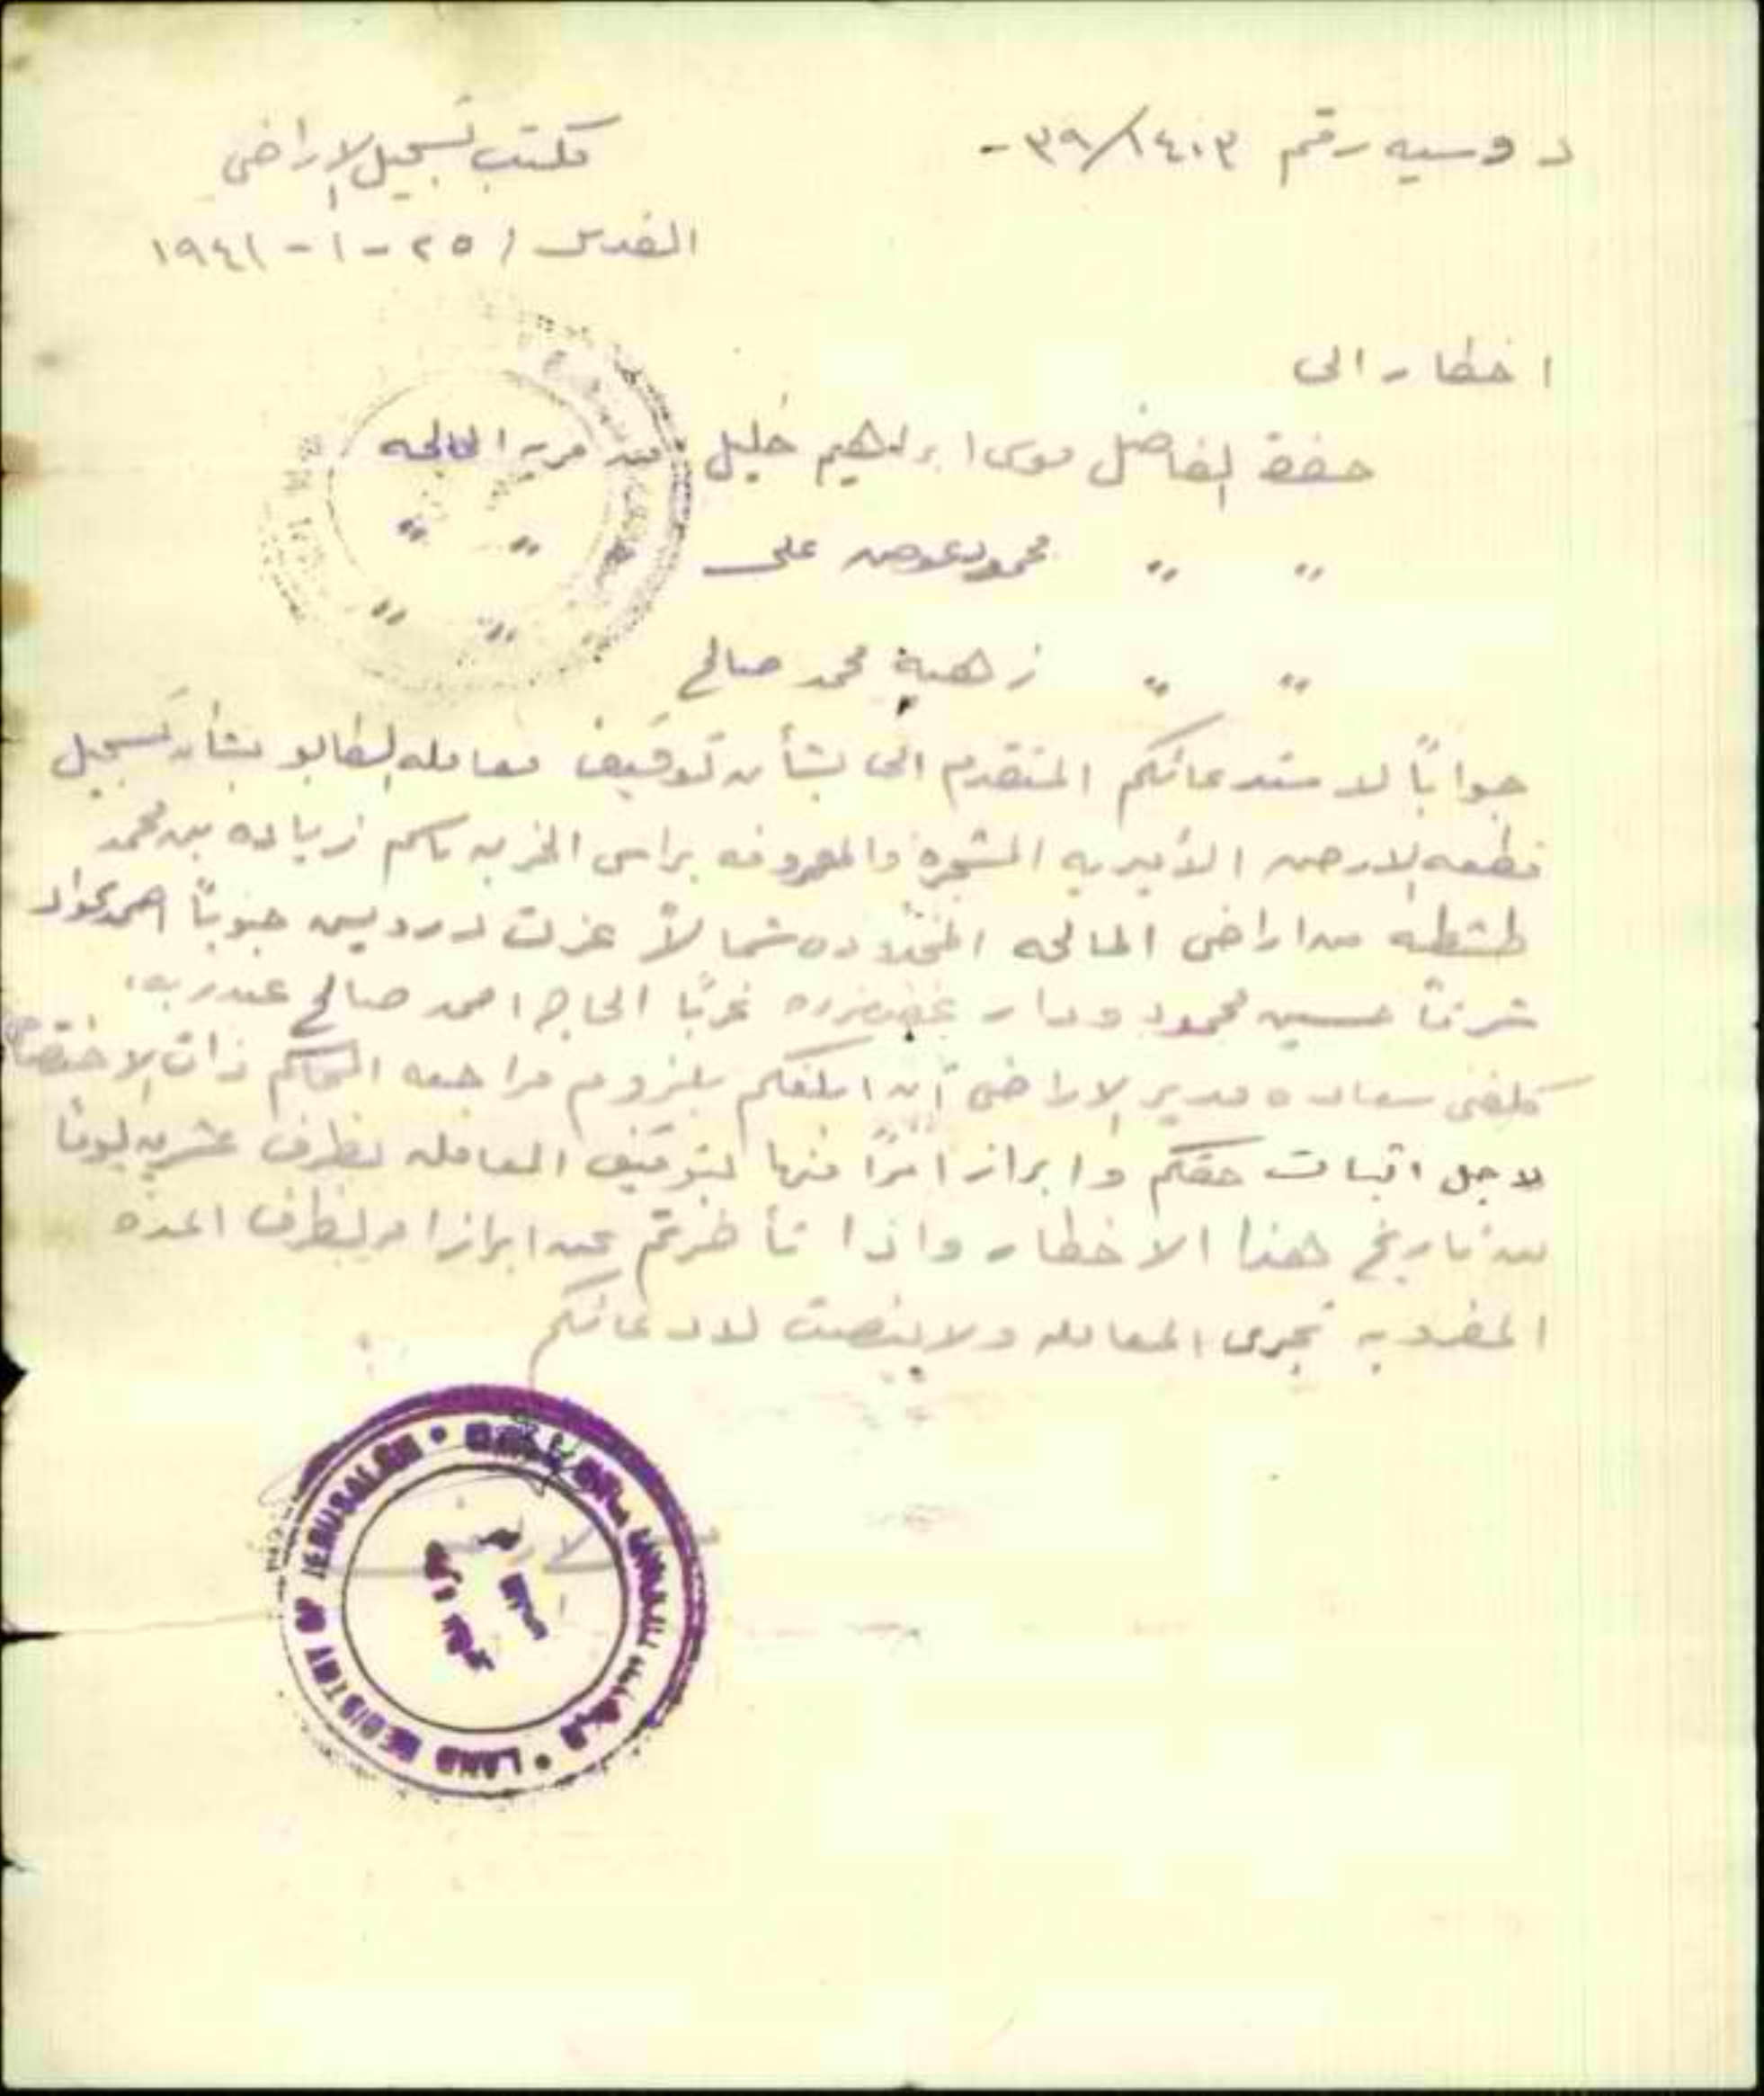 دوسيه رقم ٣٩/١٤٠٣ -
مكتب تسجيل الاراضي
القدس / ٢٥ - ١ - ١٩٤١
اخطار الى
حضرة الفاضل موسى ابراهيم خليل من قرية المالحه
" " محمود عوض علي " " "
" " زهية محمد صالح " "
جواباً لاستدعائكم المتقدم الى بشأن توقيف معامله الطابو بشأن تسجيل
قطعه الارض الأميريه المشجرة والمعروفه براس الخربه باسم زياده بن محمد
طشطه من اراضي المالحه المحدوده شمالاً عزت درويش جنوباً احمد عواد
شرقاً حسين محمود ودار غربًا الحاج احمد صالح عبدربه،
كلفني سعاده مدير الاراضي أن ابلغكم بلزوم مراجعه المحاكم ذات الاختصاص
لاجل اثبات حقكم وابراز امراً منها لتوقيف المعامله بظرف عشرين يوماً
من تاريخ هذا الاخطار واذا تأخرتم عن ابراز امر بظرف المده
المضروبه تجرى المعامله ولا ينصت لادعائكم
LAND REGISTRY OF JERUSALEM